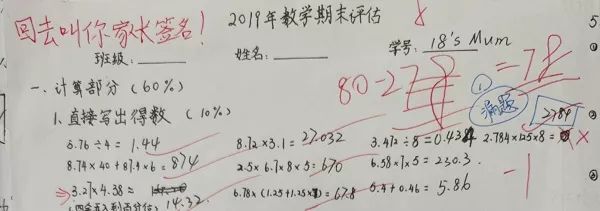 回去叫你家长签名!
2019年数学期末评估
班级: 姓名: 学号: 18's Mum
80-2 = 78
一、计算部分(60%)
① 漏题
1. 直接写出得数 (10%)
2784
5.76÷4= 1.44 8.72×3.1= 27.032 3.472÷8=0.434 2.784×125×8= ×
8.74×40+87.4×6= 874 2.5×6.7×8×5= 670 6.58×7×5= 230.3
-1
3.27×4.38≈ 6.78×(1.25+1.25× )= 67.8 5.4+0.46= 5.86
(四舍五入到百分位) 14.32
5